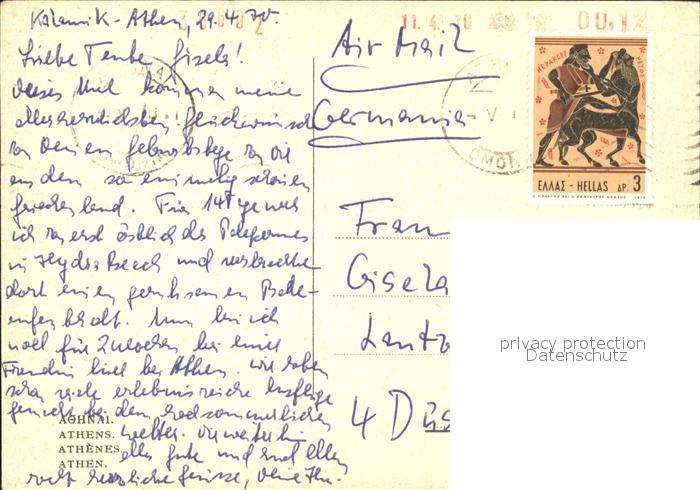 Kalamik - Athen, 29.4.70.
Liebe Tante Gisela!
dieses Mal kommen meine
allerherzlichsten Glückwünsche
zu Deinem Geburtstage zu dir
aus dem so einmalig schönen
Griechenland. Für 14 Tage war
ich zuerst östlich des Peloponnes
in Hydra Beach und verbrachte
dort einen geruhsamen Bade-
aufenthalt. Nun bin ich
noch für 2 Wochen bei einer
Freundin hier bei Athen. Wir haben
schon viele erlebnisreiche Ausflüge
gemacht bei dem hochsommerlichen
Wetter. Dir weiterhin
alles Gute und Euch allen
recht herzliche Grüsse, Deine
ΑΘΗΝΑΙ.
ATHENS.
ATHÈNES
ATHEN.
Air Mail
Germania
Frau
Gisela
4 Düs
11.4 70
00,12
ΗΡΑΚΛΗΣ
ΕΛΛΑΣ - HELLAS ΔΡ. 3
1970
privacy protection
Datenschutz